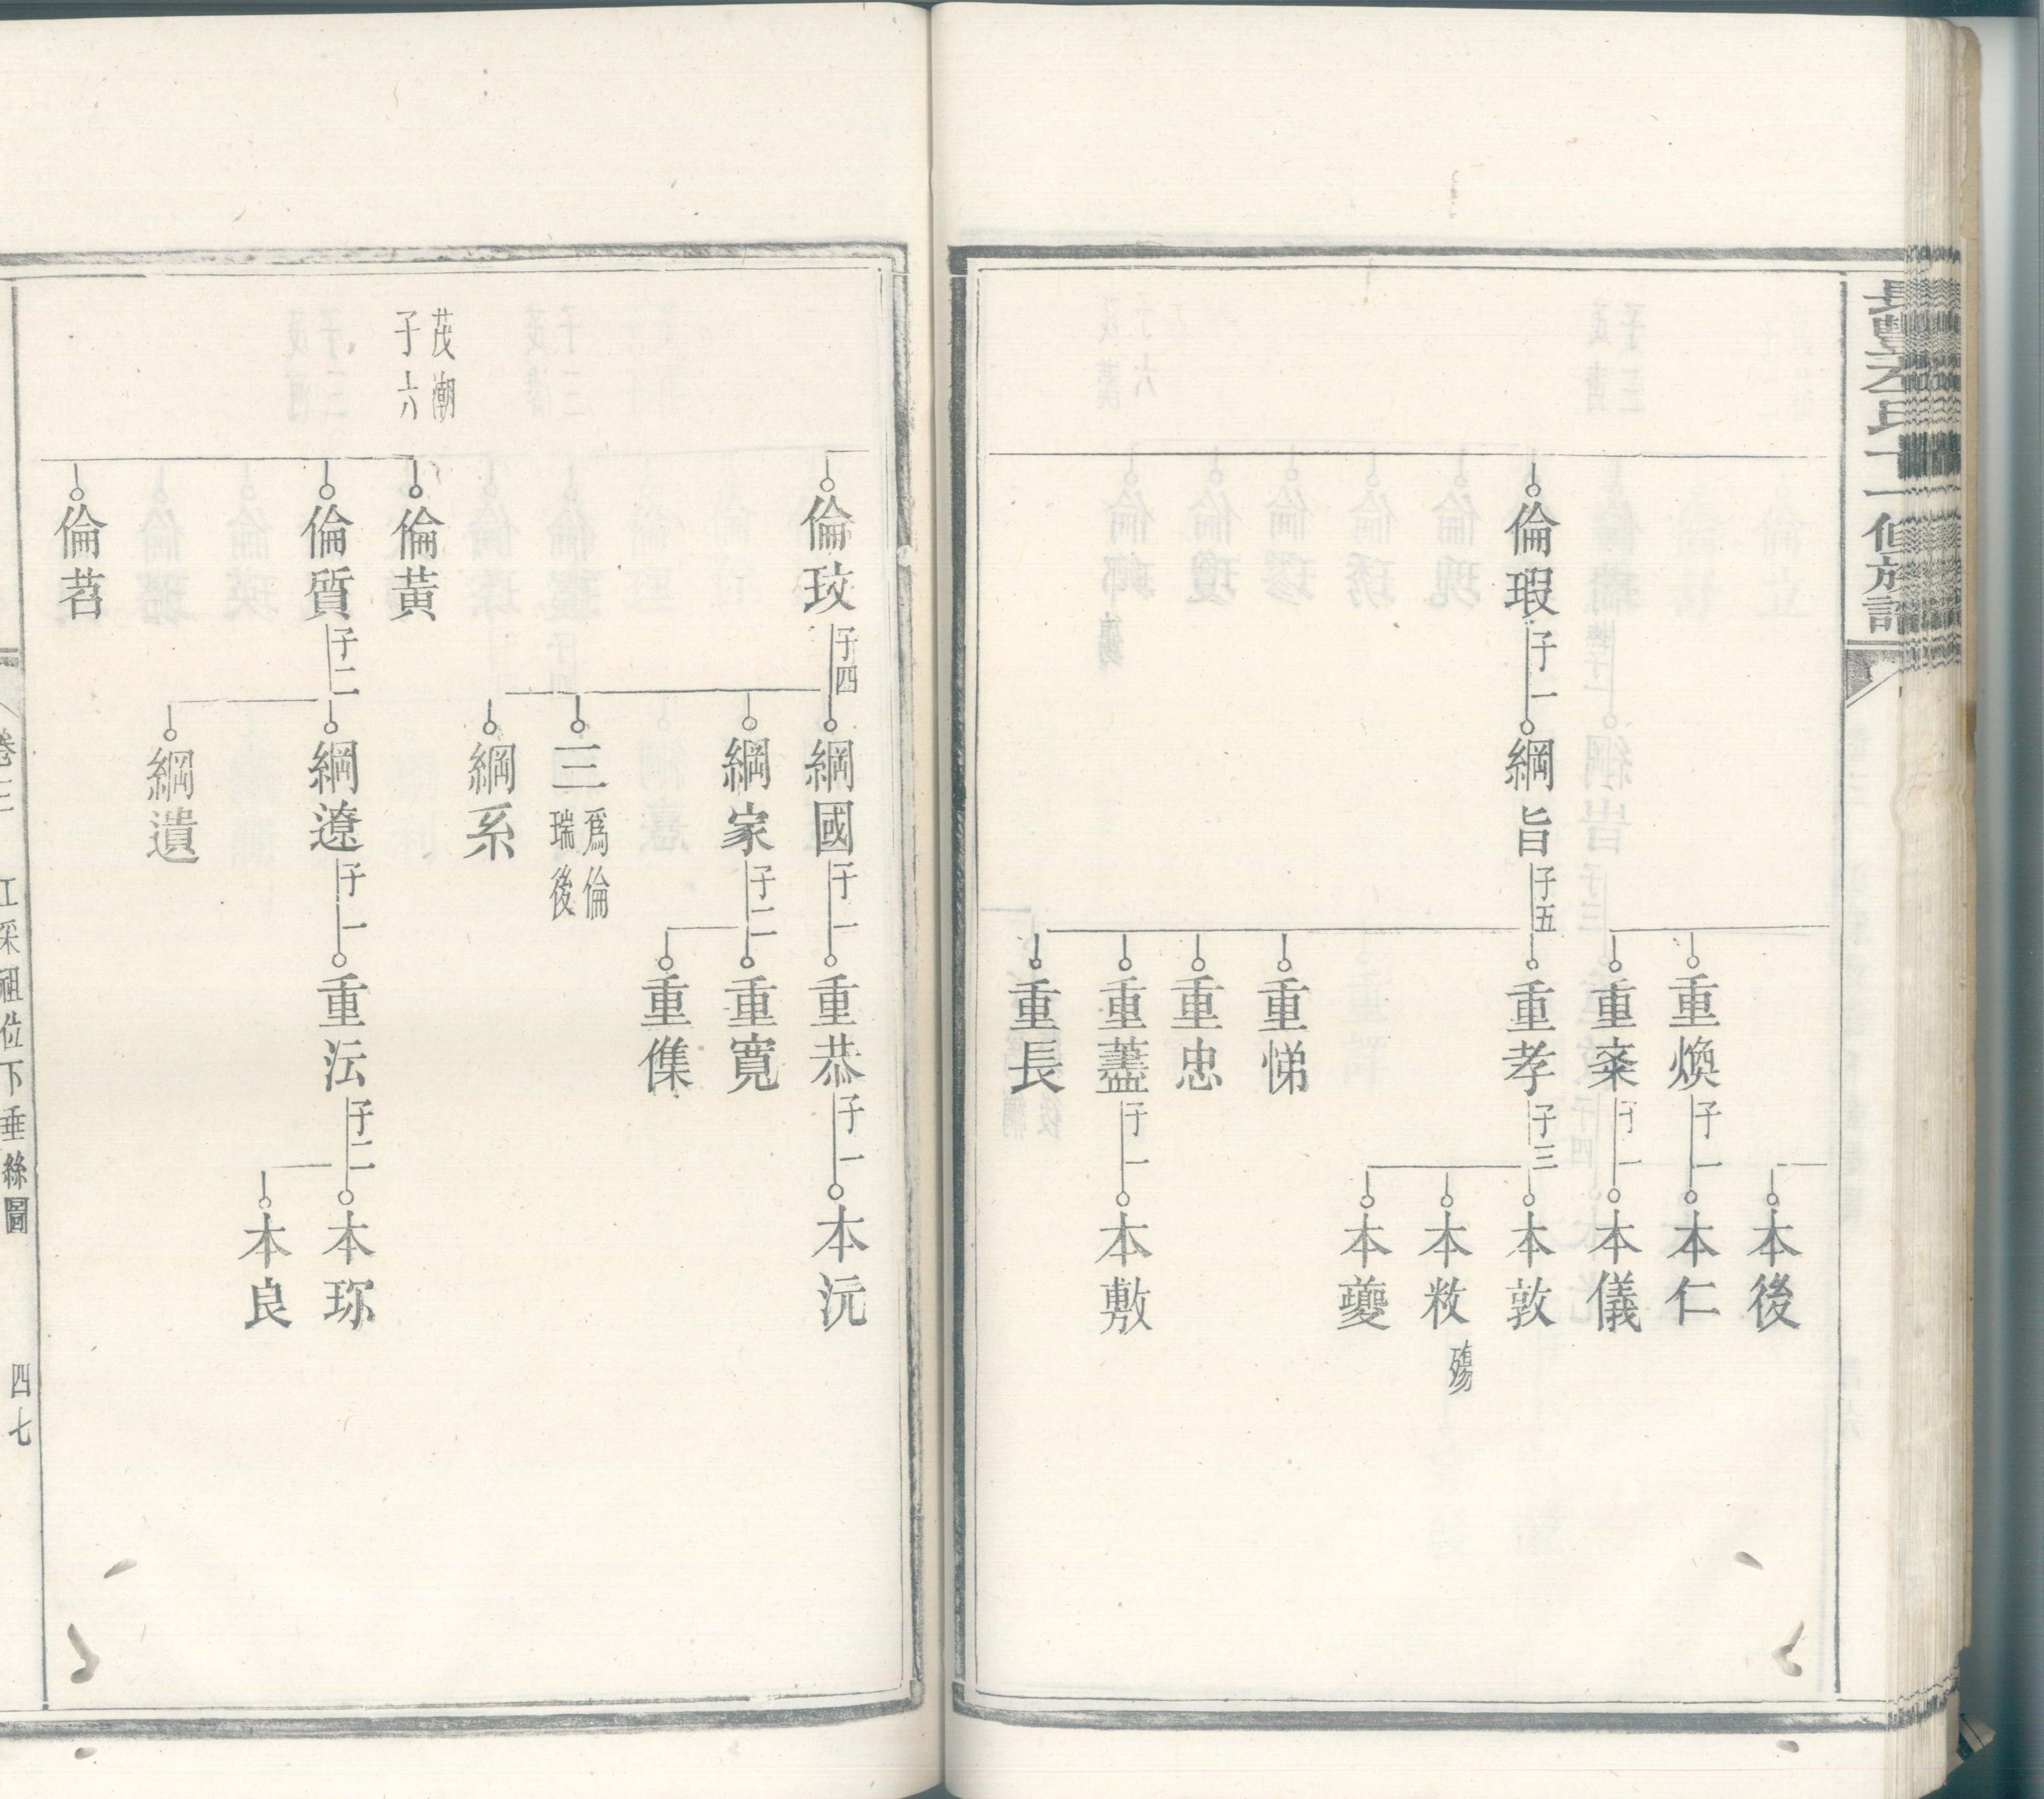 倫瑕 子一
綱旨 子五
重煥 子一
重寀 子一
重孝 子三
重悌
重忠
重藎 子一
重長
本後
本仁
本儀
本敦
本敉 殤
本夔
本敷
倫玫 子四
綱國 子一
綱家 子二
三 爲倫
瑞後
綱系
重恭 子一
重寬
重儁
本沅
茂潮
子六
倫黃
倫質 子二
倫苕
綱遼 子一
綱遺
重沄 子二
本琊
本良
卷三
江采祖位下垂絲圖
四七